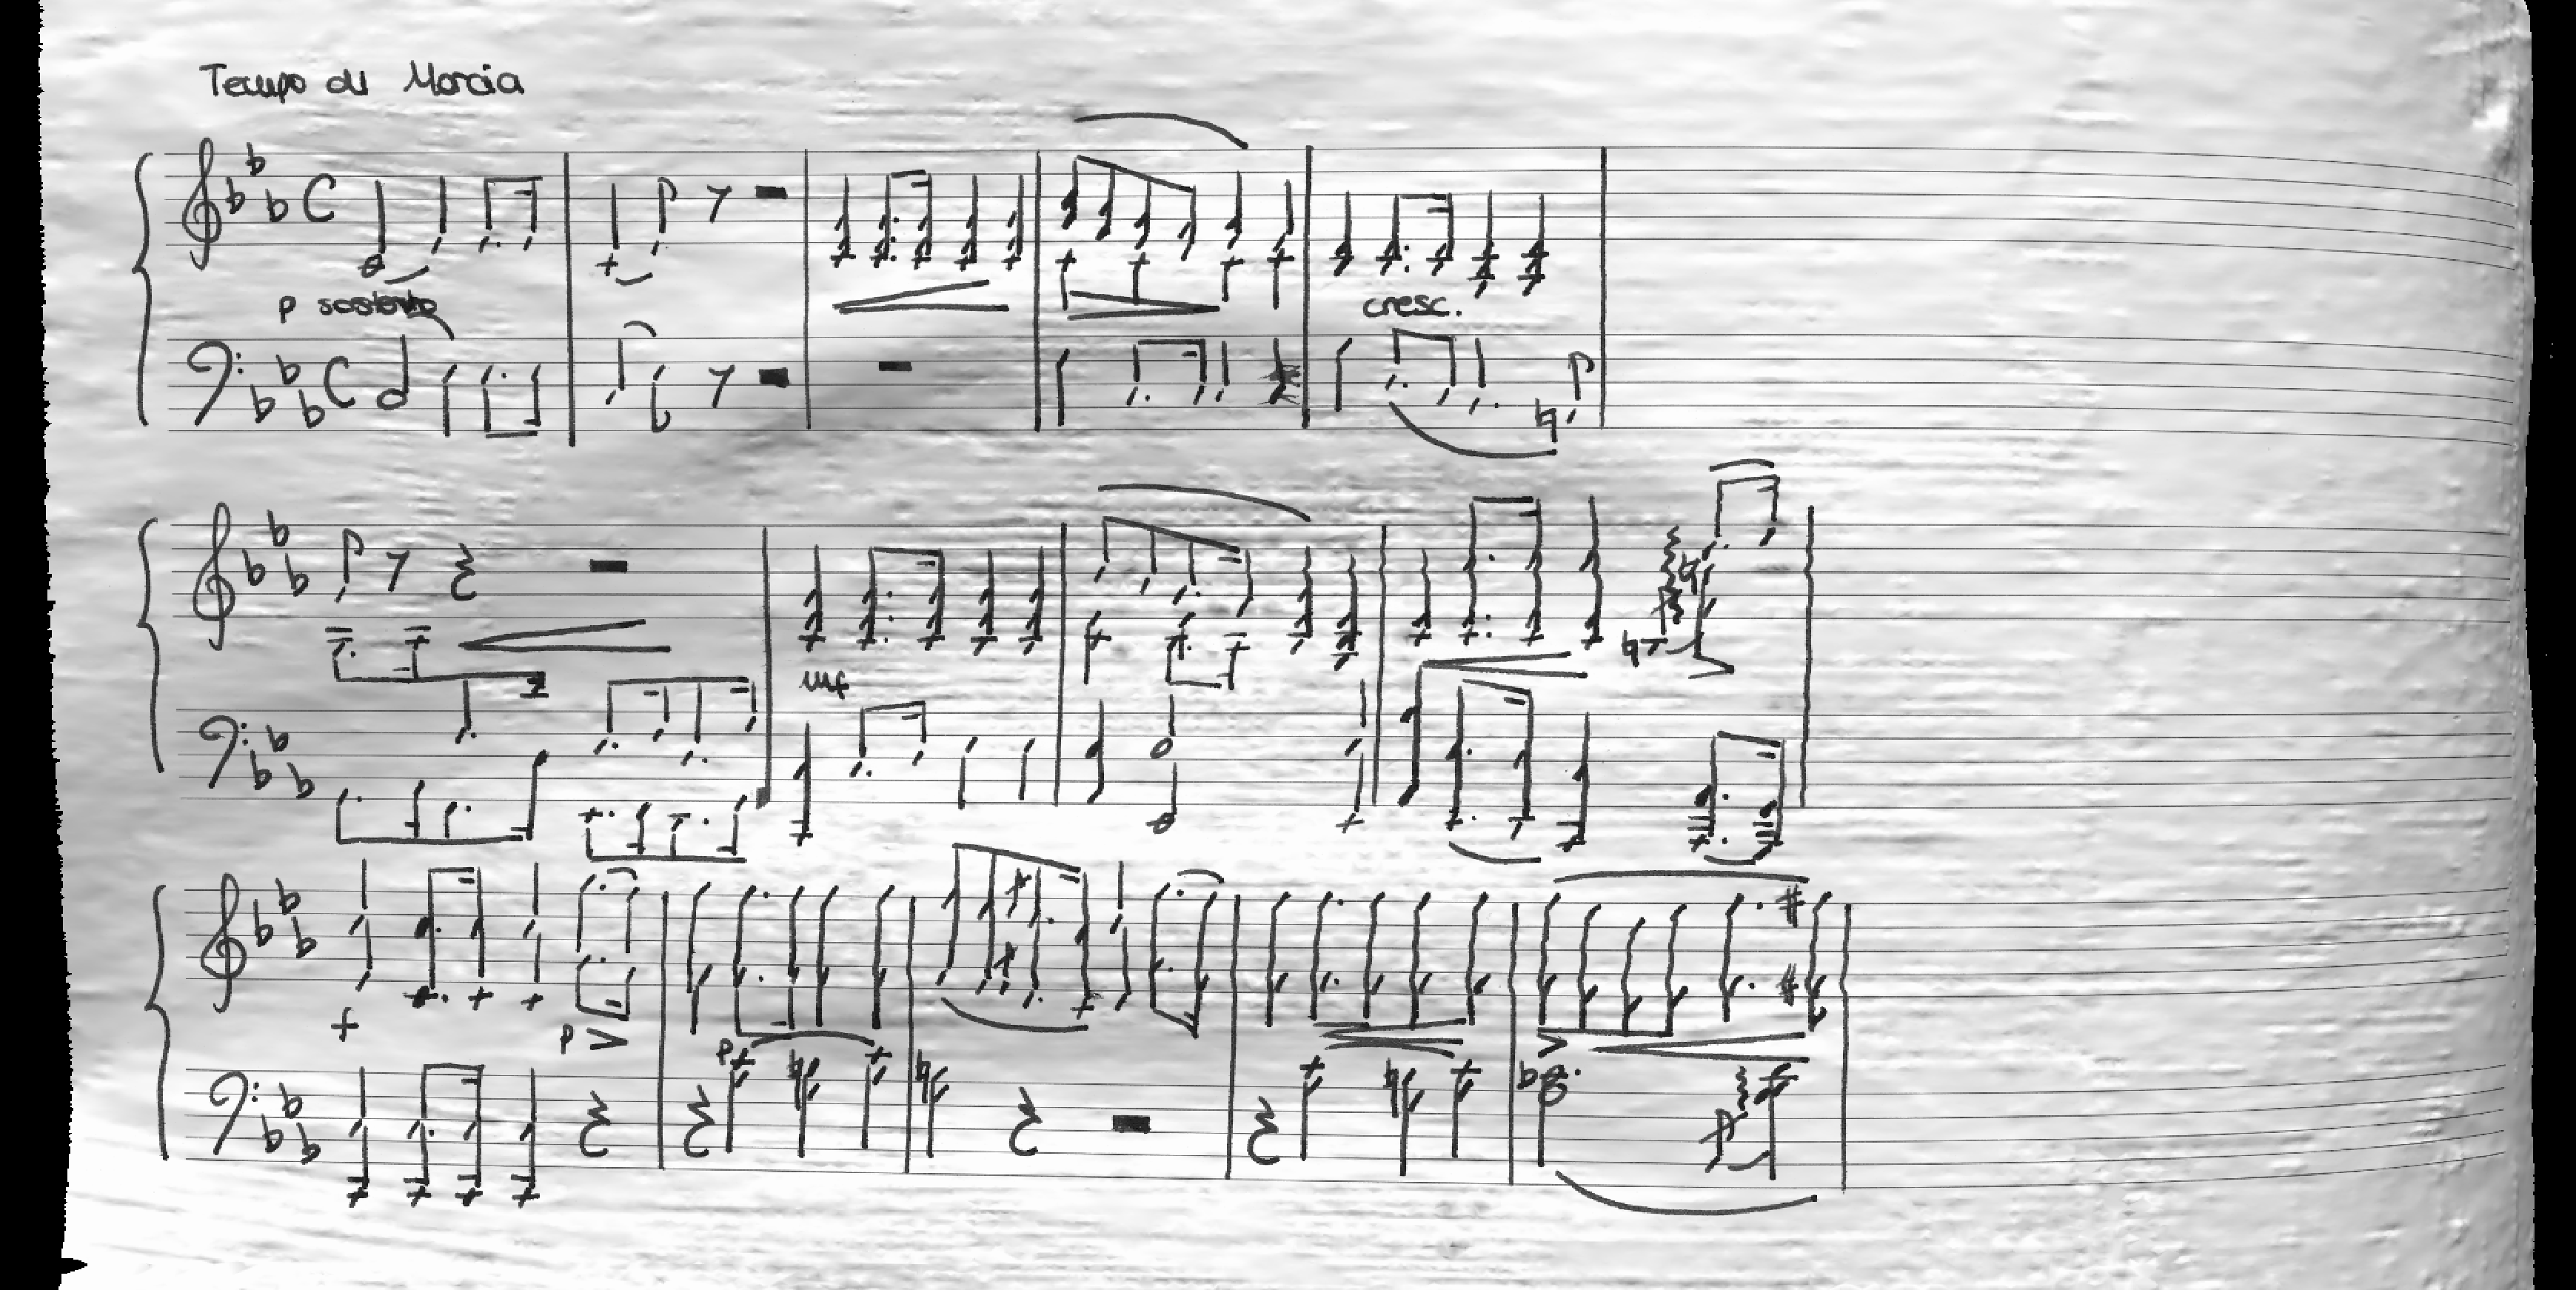 Tempo di Marcia
p sostenuto
cresc.
mf
f p
p